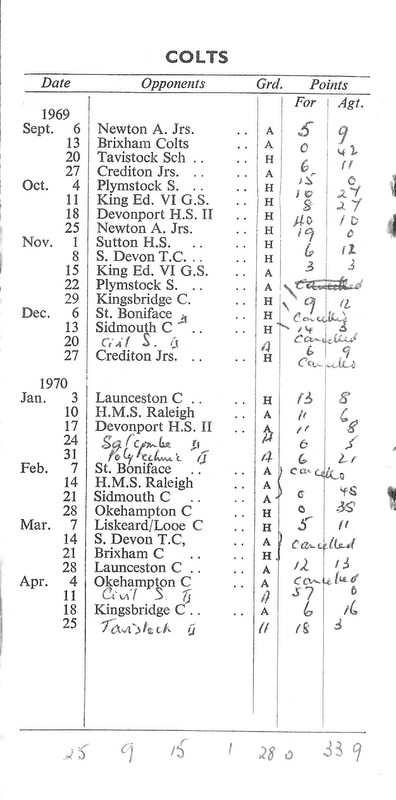 COLTS
Date Opponents Grd. Points
For Agt.
1969
Sept. 6 Newton A. Jrs. .. A 5 9
13 Brixham Colts .. A 0 42
20 Tavistock Sch .. .. H 6 11
27 Crediton Jrs. .. A 15 0
Oct. 4 Plymstock S. .. .. H 10 27
11 King Ed. VI G.S. .. H 8 27
18 Devonport H.S. II .. H 40 10
25 Newton A. Jrs. .. H 19 0
Nov. 1 Sutton H.S. .. .. H 6 12
8 S. Devon T.C. .. .. H 3 3
15 King Ed. VI G.S. .. A
22 Plymstock S. .. .. A Cancelled
29 Kingsbridge C. .. H 9 12
Dec. 6 St. Boniface II .. H Cancelled
13 Sidmouth C .. .. H 14 3
20 Civil S. II A Cancelled
27 Crediton Jrs. .. H 6 9
Cancelled
1970
Jan. 3 Launceston C .. .. H 13 8
10 H.M.S. Raleigh .. A 11 6
17 Devonport H.S. II .. A 11 8
24 Salcombe II A 0 5
31 Polytechnic II A 6 21
Feb. 7 St. Boniface .. .. A Cancelled
14 H.M.S. Raleigh .. A
21 Sidmouth C .. .. A 0 45
28 Okehampton C .. H 0 35
Mar. 7 Liskeard/Looe C .. H 5 11
14 S. Devon T.C, .. A Cancelled
21 Brixham C .. .. H
28 Launceston C .. .. A 12 13
Apr. 4 Okehampton C .. A Cancelled
11 Civil S. II A 57 0
18 Kingsbridge C .. .. A 6 16
25 Tavistock II H 18 3
25 9 15 1 280 339